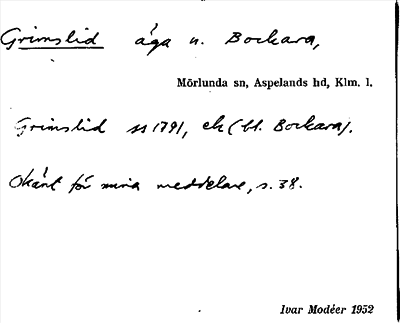 Grimslid äga u. Bockara,
Mörlunda sn, Aspelands hd, Klm. l.
Grimslid 1791, ek (bl. Bockara).
Okänt för mina meddelare, s. 38.
Ivar Modéer 1952